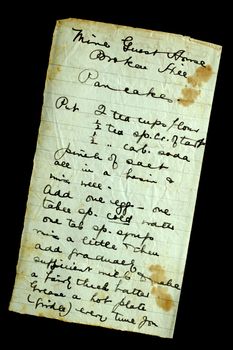 Mine Guest House
Broken Hill
Pancakes.
Put 2 tea cups flour
½ tea sp. cr. of tart
¼ " carb. soda
pinch of salt
all in a basin &
mix well.
Add one egg - one
table sp. cold water
one tab sp. syrup
mix a little then
add gradually
sufficient milk to make
a fairly thick batter
Grease a hot plate
(girdle) every time you